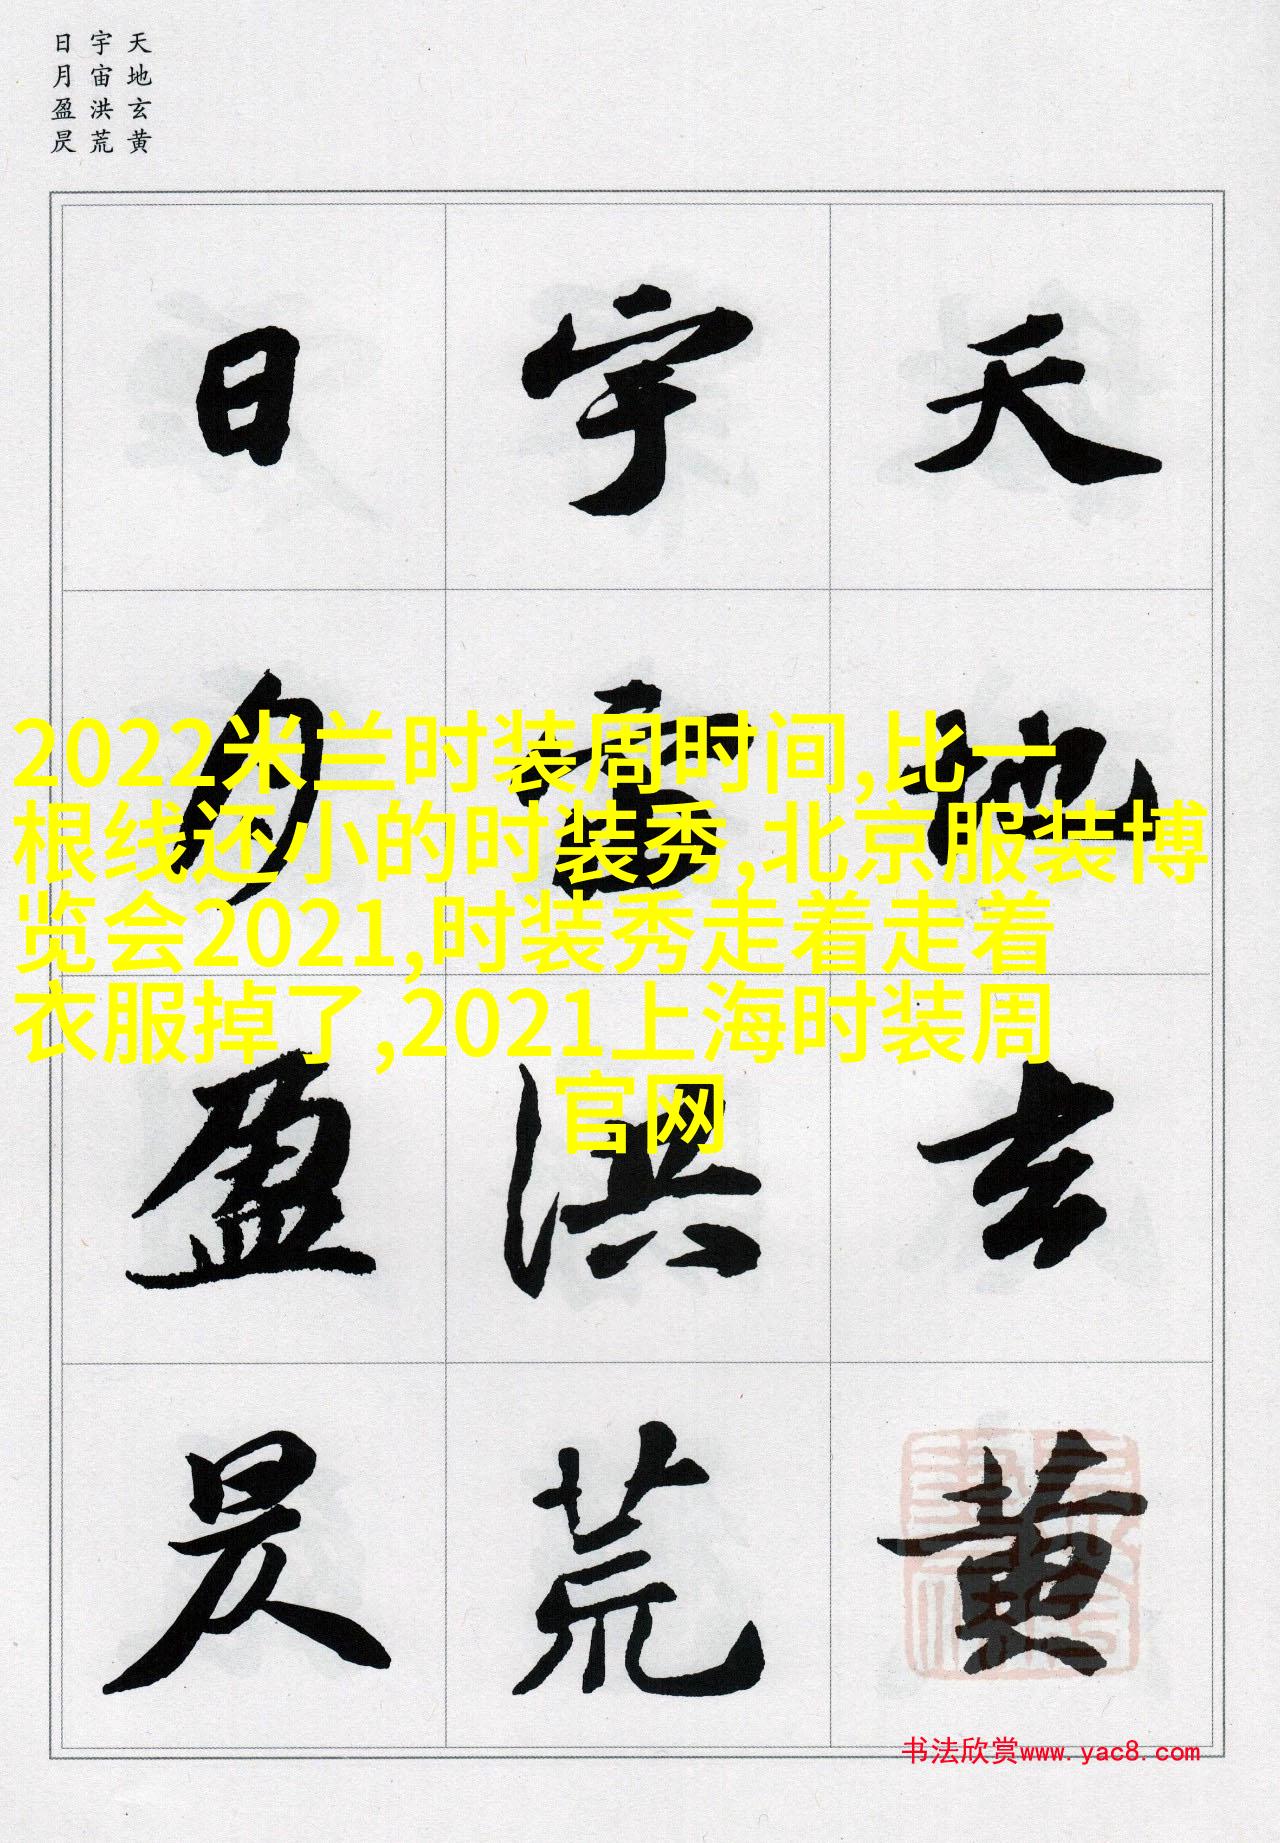 天地玄黄
宇宙洪荒
日月盈昃
天地玄黄
宇宙洪荒
日月盈昃
2022米兰时装周时间,比一
根线还小的时装秀,北京服装博
览会2021,时装秀走着走着
衣服掉了,2021上海时装周
官网
书法欣赏www.yac8.com